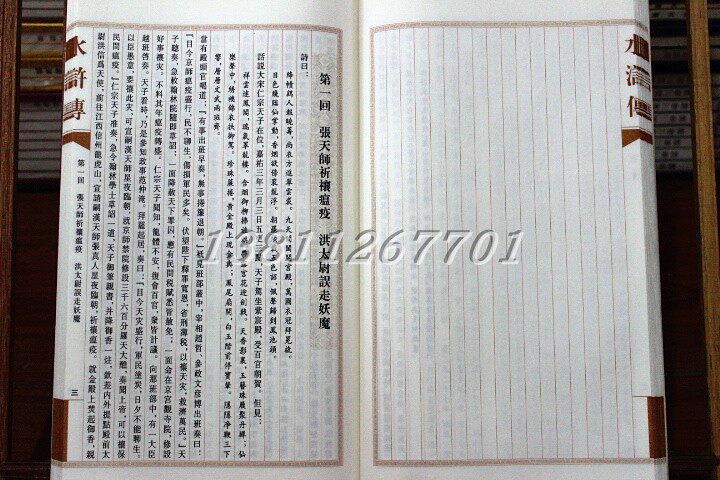 水滸傳
第一回 張天師祈禳瘟疫 洪太尉誤走妖魔
詩曰：
絳幘雞人報曉籌，尚衣方進翠雲裘。九天閶闔開宮殿，萬國衣冠拜冕旒。
日色纔臨仙掌動，香煙欲傍袞龍浮。朝罷須裁五色詔，佩聲歸到鳳池頭。
話說大宋仁宗天子在位，嘉祐三年三月三日五更三點，天子駕坐紫宸殿，受百官朝賀。但見：
祥雲迷鳳閣，瑞氣罩龍樓。含煙御柳拂旌旗，帶露宮花迎劍戟。天香影裏，玉簪珠履聚丹墀；仙
樂聲中，繡襖錦衣扶御駕。珍珠簾捲，黃金殿上現金輿；鳳尾扇開，白玉階前停寶輦。隱隱淨鞭三下
響，層層文武兩班齊。
當有殿頭官喝道：「有事出班早奏，無事捲簾退朝。」祗見班部叢中，宰相趙哲、參政文彥博出班奏曰：
「目今京師瘟疫盛行，民不聊生，傷損軍民多矣。伏望陛下釋罪寬恩，省刑薄稅，以禳天災，救濟萬民。」天
子聽奏，急敕翰林院隨即草詔，一面降赦天下罪囚，應有民間稅賦悉皆赦免；一面命在京宮觀寺院，修設
好事禳災。不料其年瘟疫轉盛。仁宗天子聞知，龍體不安，復會百官，衆皆計議。向那班部中，有一大臣
越班啓奏。天子看時，乃是參知政事范仲淹。拜罷起居，奏曰：「目今天災盛行，軍民塗炭，日夕不能聊生。
以臣愚意，要禳此災，可宣嗣漢天師星夜臨朝，就京師禁院修設三千六百分羅天大醮，奏聞上帝，可以禳保
民間瘟疫。」仁宗天子准奏，急令翰林學士草詔一道，天子御筆親書，并降御香一炷，欽差內外提點殿前太
尉洪信爲天使，前往江西信州龍虎山，宣請嗣漢天師張真人星夜臨朝，祈禳瘟疫。就金殿上焚起御香，親
水滸傳
第一回 張天師祈禳瘟疫 洪太尉誤走妖魔
三
13811267701